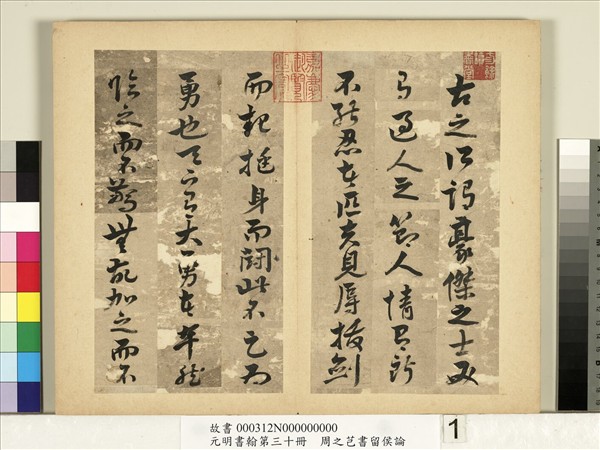 古之所謂豪傑之士必
有過人之節人情有所
不能忍者匹夫見辱拔劍
而起挺身而鬭此不足為
勇也天下有大勇者卒然
臨之而不驚無故加之而不
嘉慶御覽之寶
故書 000312N000000000
元明書翰第三十冊 周之芑書留侯論
1